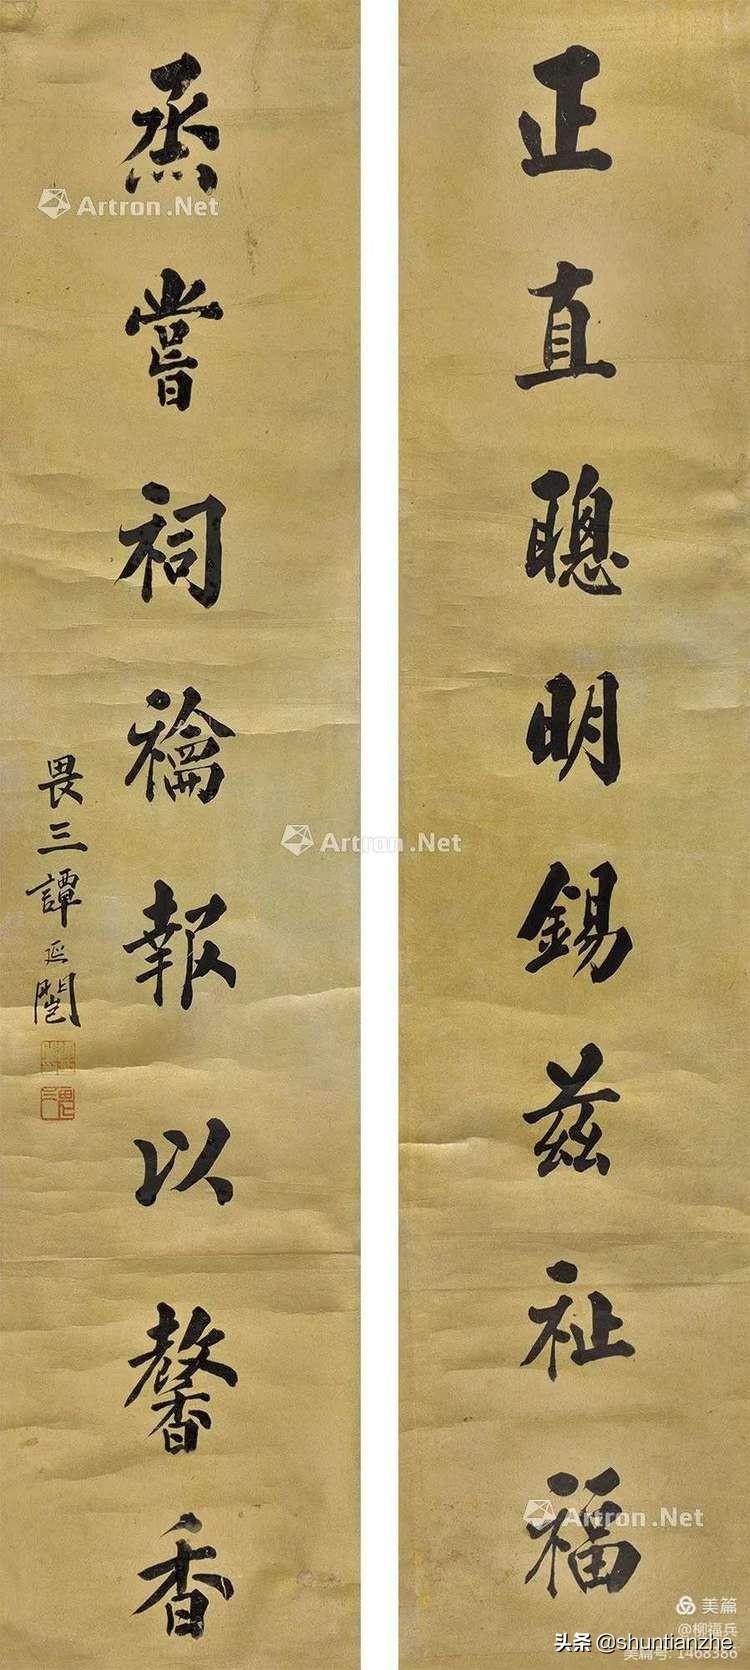 正直聰明錫茲祉福
烝嘗祠禴報以馨香
畏三譚延闓
畏三
Artron.Net
Artron.Net
Artron.Net
美篇
@柳福兵
美篇号: 1468386
头条 @shuntianzhe